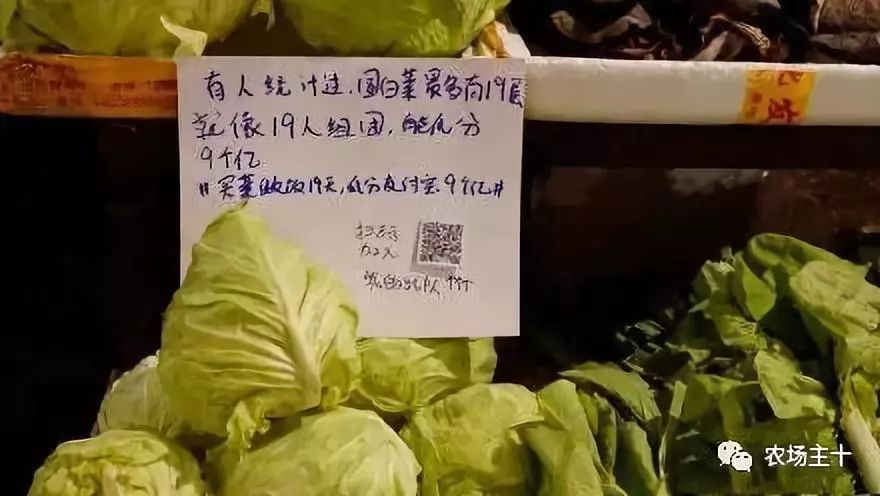 有人统计过,圆白菜最多有19层
就像19人组团,能瓜分
9个亿
#买菜做饭19天,瓜分支付宝9个亿#
扫码
加入
战队
农场主十